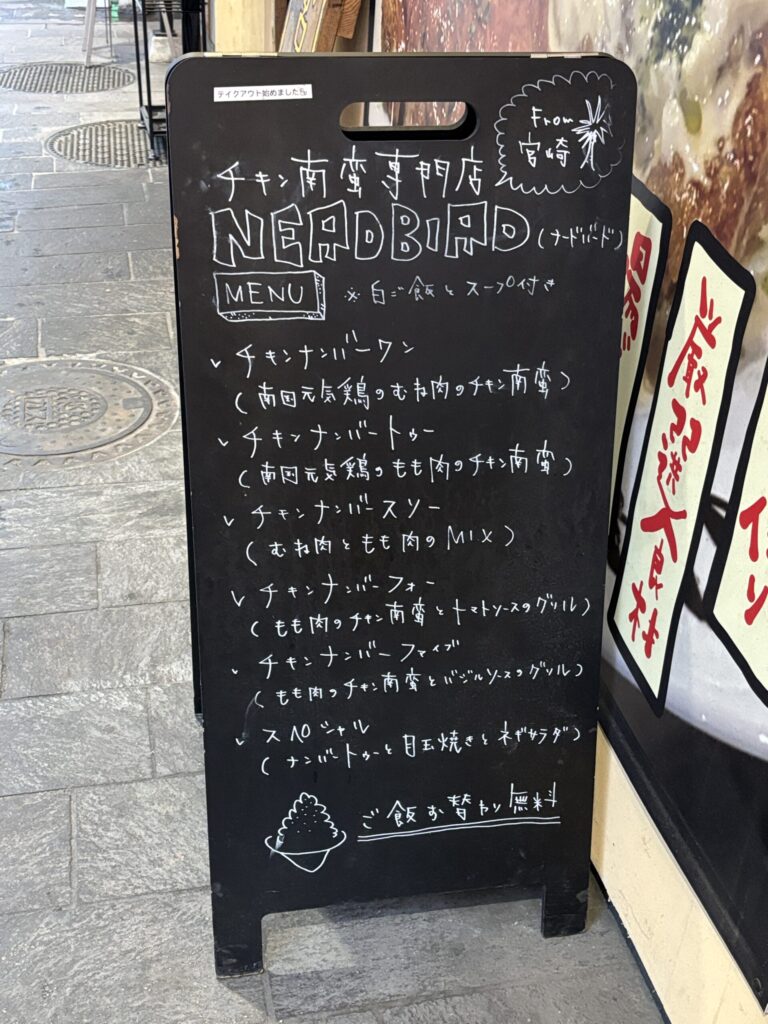 テイクアウト始めました
From
宮崎
チキン南蛮専門店
NERDBIRD (ナードバード)
MENU ※白ご飯とスープ付き
✓ チキンナンバーワン
(南国元気鶏のむね肉のチキン南蛮)
✓ チキンナンバートゥー
(南国元気鶏のもも肉のチキン南蛮)
✓ チキンナンバースリー
(むね肉ともも肉のMIX)
✓ チキンナンバーフォー
(もも肉のチキン南蛮とトマトソースのグリル)
✓ チキンナンバーファイブ
(もも肉のチキン南蛮とバジルソースのグリル)
✓ スペシャル
(ナンバートゥーと目玉焼きとネギサラダ)
ご飯お替わり無料